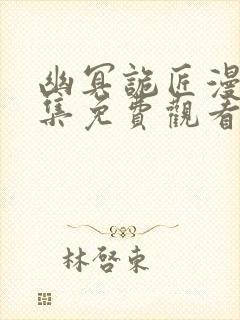 幽冥詭匠漫
集免費觀看
林啓東